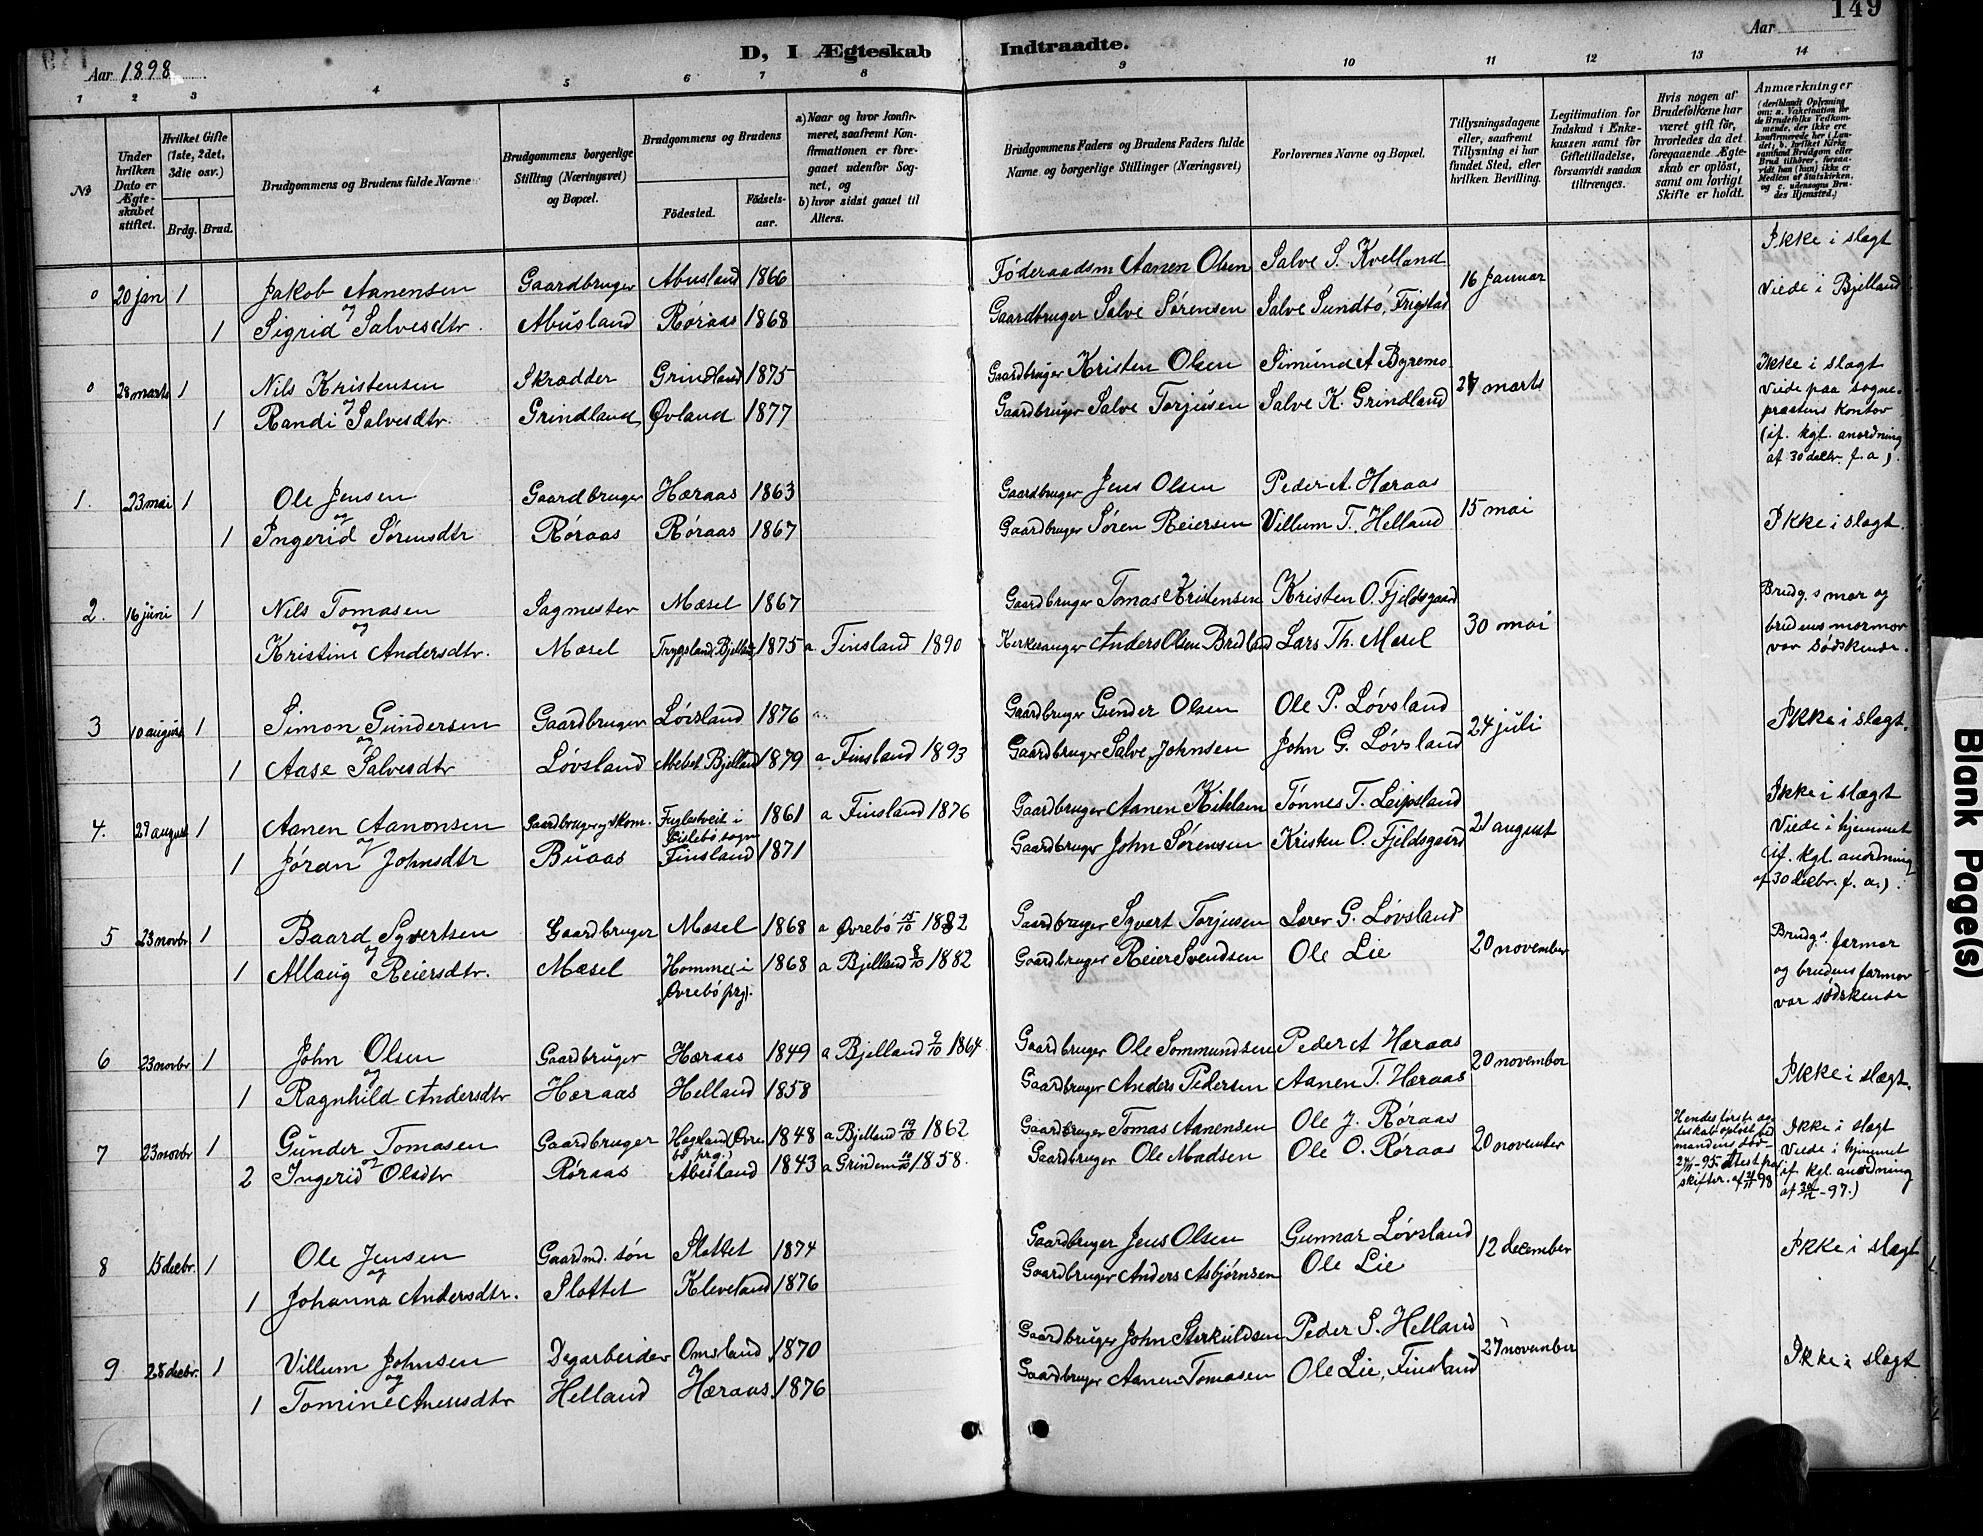 149
D, I Ægteskab Indtraadte.
Aar 1898
Aar
1 2 3 4 5 6 7 8 9 10 11 12 13 14
No
Under hvilken Dato er Ægteskabet stiftet.
Hvilket Gifte (1ste, 2det, 3die osv.)
Brdg. Brud.
Brudgommens og Brudens fulde Navne
Brudgommens borgerlige Stilling (Næringsvei) og Bopæl.
Brudgommens og Brudens
Födested. Födsels-aar.
a) Naar og hvor konfirmeret, saafremt Konfirmationen er foregaaet udenfor Sognet, og
b) hvor sidst gaaet til Alters.
Brudgommens Faders og Brudens Faders fulde Navne og borgerlige Stillinger (Næringsvei)
Forlovernes Navne og Bopæl.
Tillysningsdagene eller, saafremt Tillysning ei har fundet Sted, efter hvilken Bevilling.
Legitimation for Indskud i Enkekassen samt for Giftetilladelse, forsaavidt saadan tiltrænges.
Hvis nogen af Brudefolkene har været gift för, hvorledes da det foregaaende Ægteskab er oplöst, samt om lovligt Skifte er holdt.
Anmærkninger
(deriblandt Oplysning om: a. Vakcination for de Brudefolks Vedkommende, der ikke ere konfirmerede her i Landet; b. hvilket Kirkesamfund Brudgom eller Brud tilhörer, forsaavidt han (hun) ikke er Medlem af Statskirken, og c. udensogns Brudes Hjemsted.)
0 20 jan 1 Jakob Aanensen Gaardbruger Abusland 1866 Föderaadsm Aanen Olsen Salve S. Kvelland 16 Januar Ikke i slægt
og
1 Sigrid Salvesdtr. Abusland Røraas 1868 Gaardbruger Salve Sørensen Salve Sundtö, Frigstad Viede i Bjelland
0 28 marts 1 Nils Kristensen Skrædder Grindland 1875 Gaardbruger Kristen Olsen Simund A Byremo 27 marts Ikke i slægt
og
1 Randi Salvesdtr. Grindland Øvland 1877 Gaardbruger Salve Torjusen Salve K. Grindland Viede paa sognepræstens kontor
(if. kgl. anordning
af 30 decbr. f. a.)
1. 23 mai 1 Ole Jensen Gaardbruger Hæraas 1863 Gaardbruger Jens Olsen Peder A. Hæraas 15 mai Ikke i slægt.
og
1 Ingerid Sørensdtr Røraas Røraas 1867 Gaardbruger Sören Reiersen Villum T. Helland
2. 16 juni 1 Nils Tomasen Sagmester Mæsel 1867 Gaardbruger Tomas Kristensen Kristen O. Fjeldsgaard 30 mai Brudg.s mor og
og
Kristine Andersdtr. Mæsel Trygsland, Bjelland 1875 a Finsland 1890 Kirkesanger Anders Olsen Bredland Lars Th. Mæsel brudens mormor
var södskende.
3 10 august 1 Simon Gundersen Gaardbruger Løvsland 1876 a. Gaardbruger Gunder Olsen Ole P. Løvsland 24 juli Ikke i slægt.
og
1 Aase Salvesdtr Løvsland Mebø Bjelland 1879 a Finsland 1893 Gaardbruger Salve Johnsen John G. Løvsland
4. 29 august 1 Aanen Aanonsen Gaardbruger og skom. Fuglestveit i 1861 a Finsland 1876 Gaardbruger Aanen Kittelsen Tønnes T. Leipsland 21 august Ikke i slægt
og Gislebö sogn
1 Jöran Johnsdtr Buaas Finsland 1871 Gaardbruger John Sørensen Kristen O. Fjeldsgaard Viede i hjemmet
(if. kgl. anordning
af 30 decbr. f. a.).
5 23 novbr 1 Baard Syvertsen Gaardbruger Mæsel 1868 a Øvrebö 15/10 1882 Gaardbruger Syvert Torjusen Lorer G. Løvsland 20 november Brudg.s farmor
og
1 Allaug Reiersdtr. Mæsel Homme i 1868 a Bjelland 8/10 1882 Gaardbruger Reier Svendsen Ole Lie og brudens farmor
Øvrebö prg. var södskende
6 23 novbr 1 John Olsen Gaardbruger Hæraas 1849 a Bjelland 9/10 1864 Gaardbruger Ole Sommundsen Peder A Hæraas 20 november Ikke i slægt.
og
1 Ragnhild Andersdtr Hæraas Helland 1858 Gaardbruger Anders Pedersen Aanen T. Hæraas
7 23 novbr 1 Gunder Tomasen Gaardbruger Hageland (Øvrebö prg.) 1848 a Bjelland 19/10 1862 Gaardbruger Tomas Aanensen Ole J. Røraas 20 november Hendes første ægteskab opløst ved mandens død Ikke i slægt
og
2 Ingerid Olsdtr Røraas Abusland 1843 a Grindem 1858. Gaardbruger Ole Madsen Ole O. Røraas -95. Attest fra skifter. af 98 Viede i hjemmet
if. kgl. anordning
af 30/12-97.)
8 15 decbr. 1 Ole Jensen Gaardmd. sön Slottet 1874 Gaardbruger Jens Olsen Gunnar Løvsland 12 december Ikke i slægt
og
1 Johanna Andersdtr. Slottet Kleveland 1876 Gaardbruger Anders Asbjørnsen Ole Lie
9 28 decbr. 1 Villum Johnsen Dagarbeider Omsland 1870 Gaardbruger John Sterkuldsen Peder S. Helland 27 november Ikke i slægt
og
1 Tomine Anensdtr Helland Hæraas 1876 Gaardbruger Aanen Tomasen Ole Lie, Finsland
Blank Page(s)